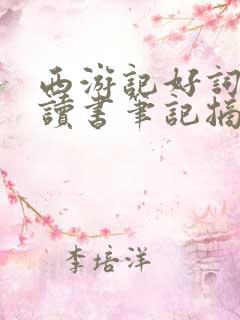 西游記好詞
讀書筆記摘
李培洋